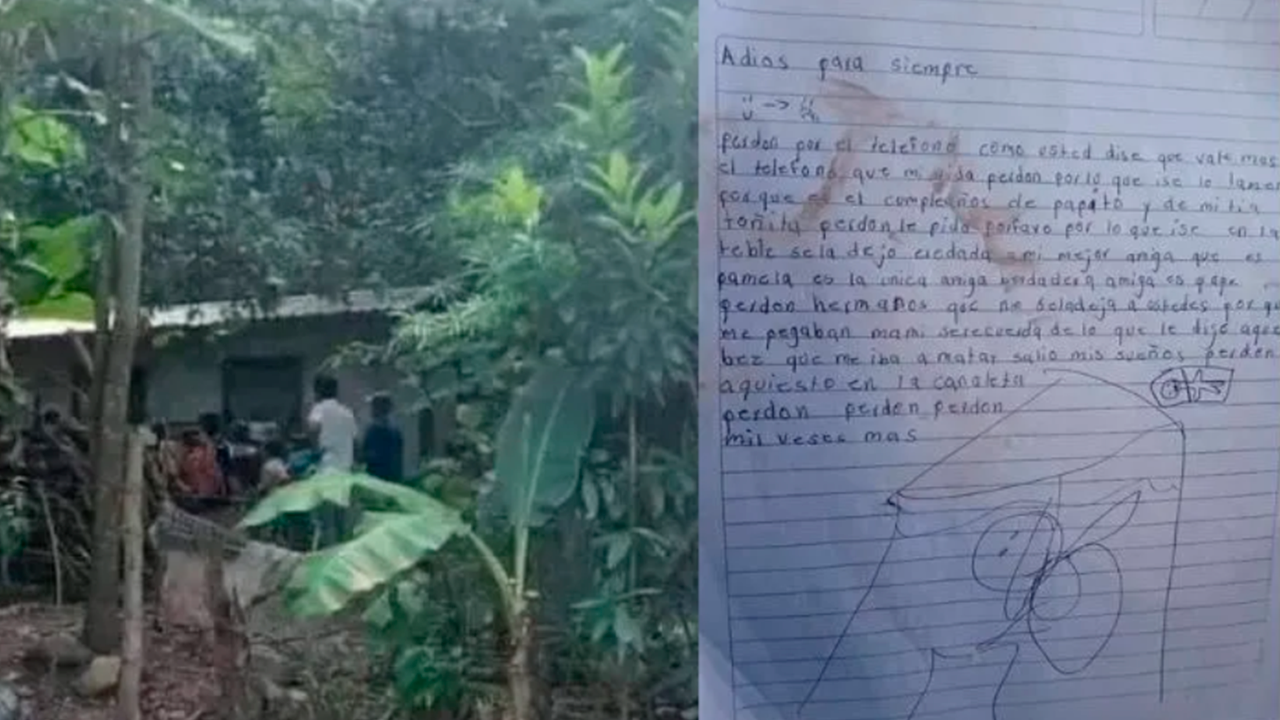 Adios para siempre
perdon por el telefono como usted dise que vale mas
el telefono que mi vida perdon por lo que ise lo lamen
porque es el compleaños de papito y de mi tia
toñita perdon le pido porfavo por lo que ise en la
teble se la dejo eredada a mi mejor amiga que es
pamela es la unica amiga verdadera amiga es pape
perdon hermanos que no se la deja a ostedes por qu
me pegaban mami se recuerda de lo que le dije aque
bez que me iba a matar salio mis sueños perdon
aqui esto en la canaleta
perdon perdon perdon
mil veses mas